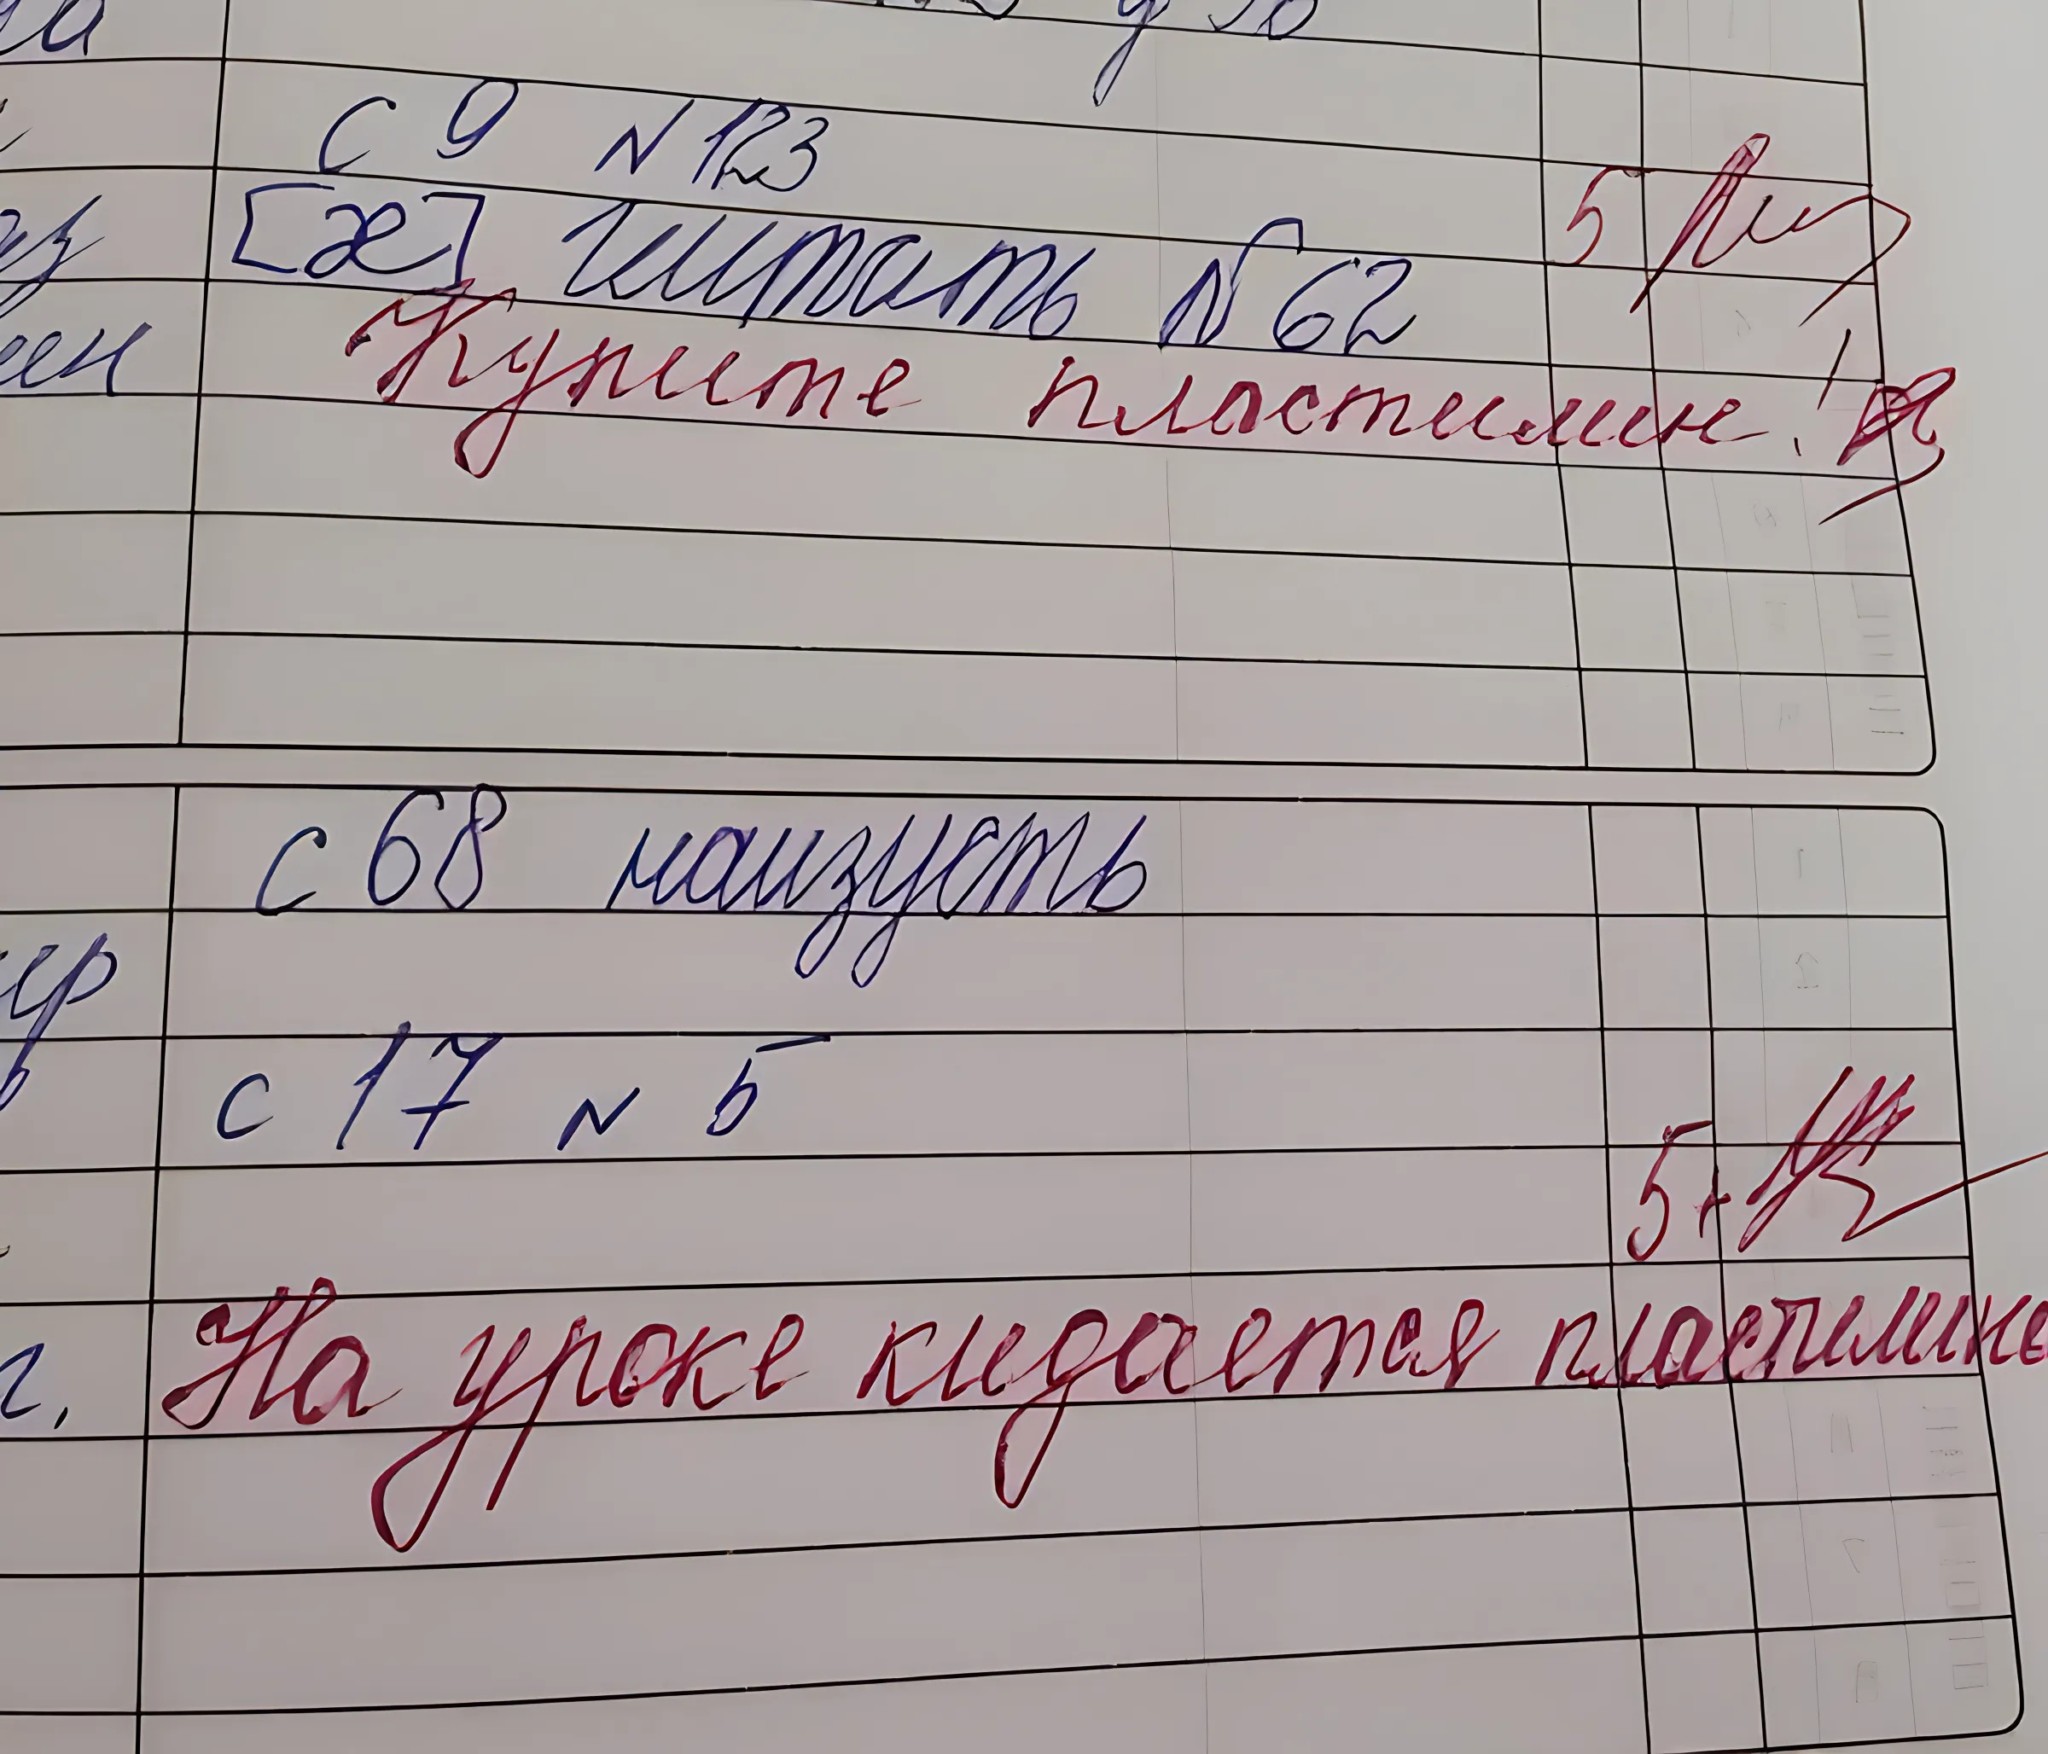 с 9 N 123
[æ] читать N 62 5
Купите пластилин!
с 68 наизусть
с 17 N 5
5+
На уроке кидается пластилине